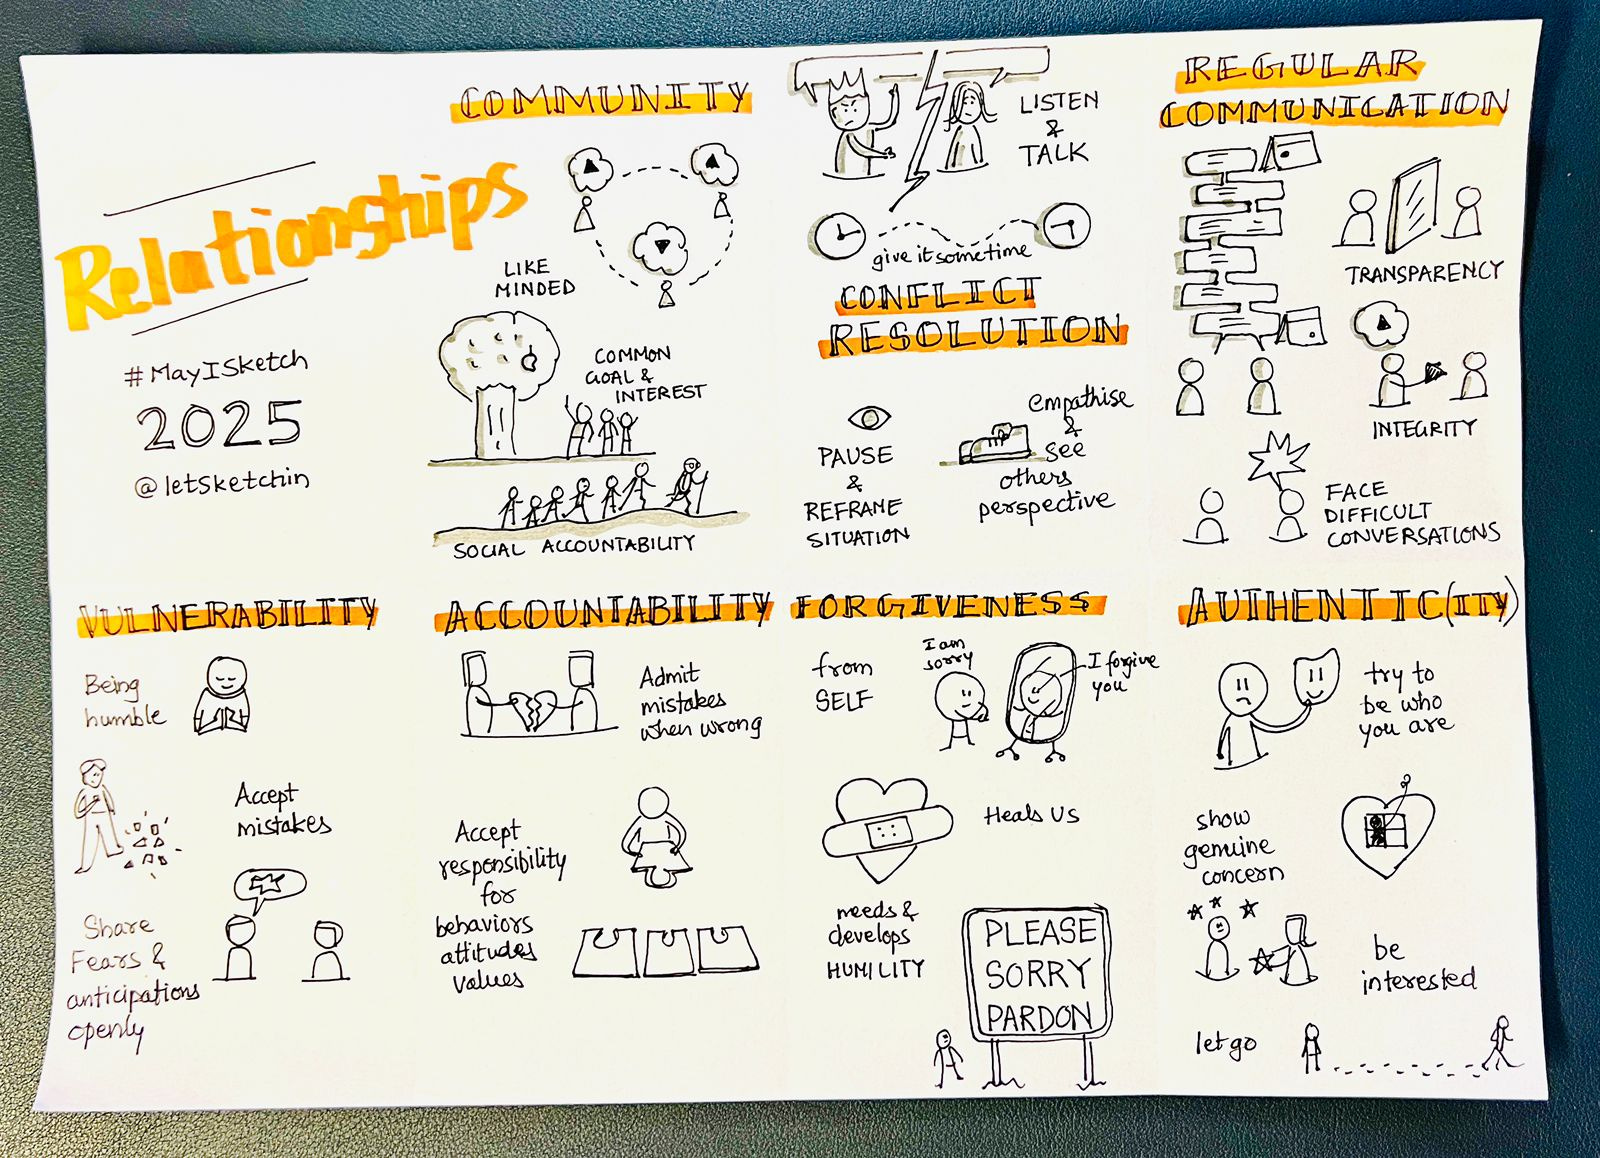 Relationships
#MayISketch
2025
@letsketchin
COMMUNITY
LIKE
MINDED
COMMON
GOAL &
INTEREST
SOCIAL ACCOUNTABILITY
LISTEN
&
TALK
give it sometime
CONFLICT
RESOLUTION
PAUSE
&
REFRANE
SITUATION
empathise
&
see
others
perspective
REGULAR
COMMUNICATION
TRANSPARENCY
INTEGRITY
FACE
DIFFICULT
CONVERSATIONS
VULNERABILITY
Being
humble
Accept
mistakes
Share
Fears &
anticipations
openly
ACCOUNTABILITY
Admit
mistakes
when wrong
Accept
responsibility
for
behaviors
attitudes
values
FORGIVENESS
from
SELF
I am
sorry
I forgive
you
Heals US
needs &
develops
HUMILITY
PLEASE
SORRY
PARDON
AUTHENTIC(ITY)
try to
be who
you are
show
genuine
concern
be
interested
let go